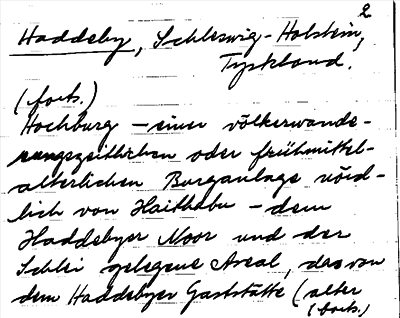 2
Haddeby, Schleswig-Holstein,
Tyskland.
(forts.)
Hochburg - einer völkerwande-
rungszeitlichen oder frühmittel-
alterlichen Burganlage nörd-
lich von Haithabu - dem
Haddebyer Noor und der
Schlei gelegene Areal, das von
dem Haddebyer Gaststätte (alter
(forts.)